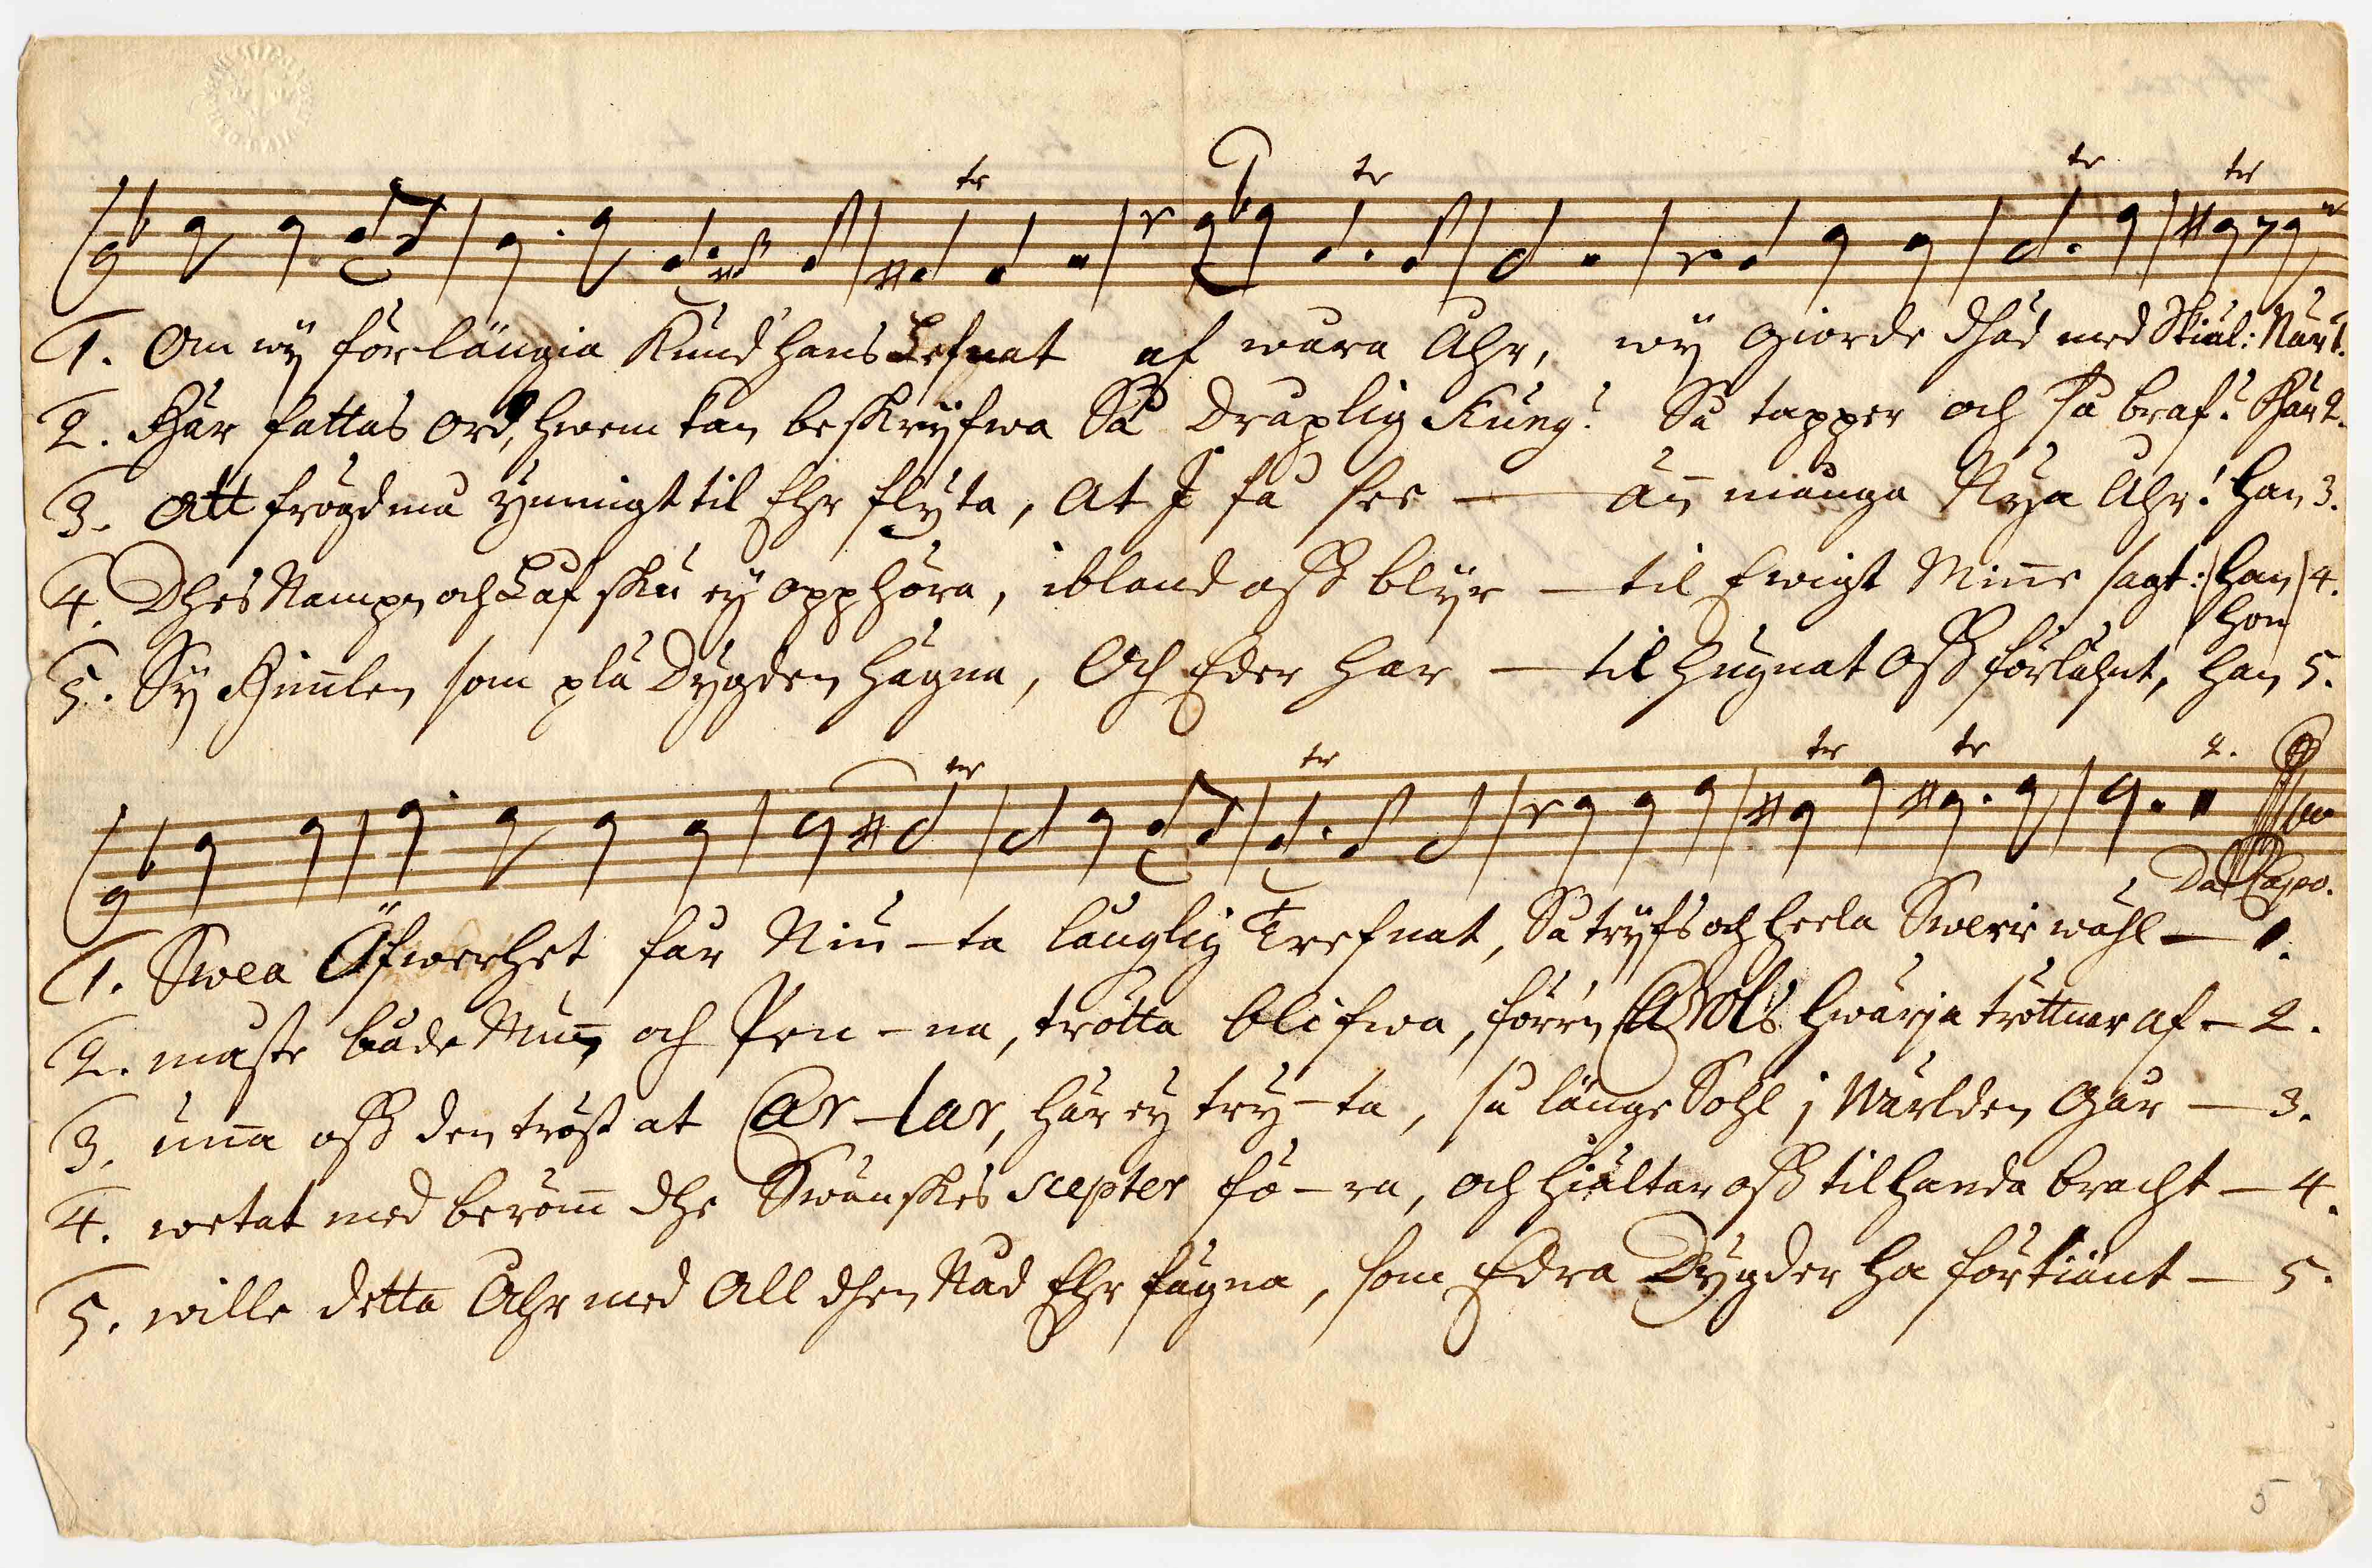 tr tr tr tr
1. Om wij förlängia Kund' hans Lefnat af wåra Åhr, wij giorde dhäd med Skiäl: När 1.
2. Här fattas ord, hwem kan beskrijfwa Så Dråplig Kung? Så tapper och så braf? Här 2.
3. Att frögd må ymnigt til Ehr flyta, At I få see — än många Nya Åhr! Han 3.
4. Dhes Nampn och Låf sku ey opphöra, ibland oss blijr — til Ewigt Minne sagt: Han 4.
hon
5. Sij Himlen som plä Dygden hägna, Och Eder har — til hugnat oss förlähnt, Han 5.
tr tr tr tr 2.
Da Capo.
1. Swea Öfwerhet får Niu-ta långlig Trefnat, Så trijfs och heela Swerie wähl — 1.
2. måste både Mun och Pen-na, trötta blifwa, förr'n Carols Hwärja tröttnar af — 2.
3. unna oss den tröst at Car-lar, här ey try-ta, så länge Sohl i Wärlden Går — 3.
4. wetat med beröm dhe Swänskes scepter fö-ra, och hiältar oss til handa bracht — 4.
5. wille detta Åhr med All dhen Nåd Ehr fägna, som Edra Dygder ha förtiänt — 5.
5